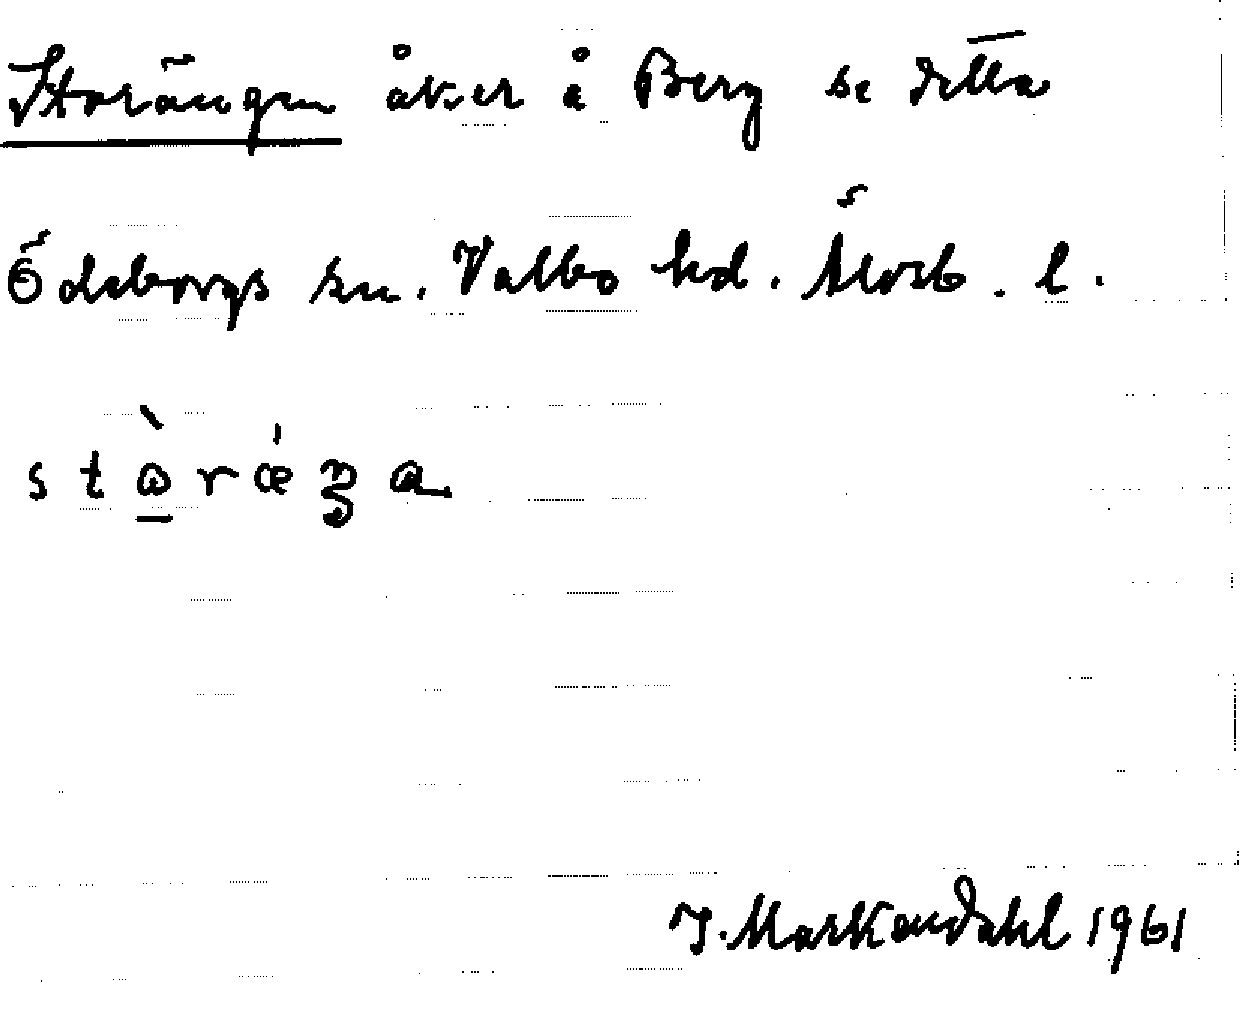 Storängen åker å Berg se detta
Ödeborgs sn. Valbo hd. Älvsb. l.
stὼ̱rǽŋa
J. Markendahl 1961